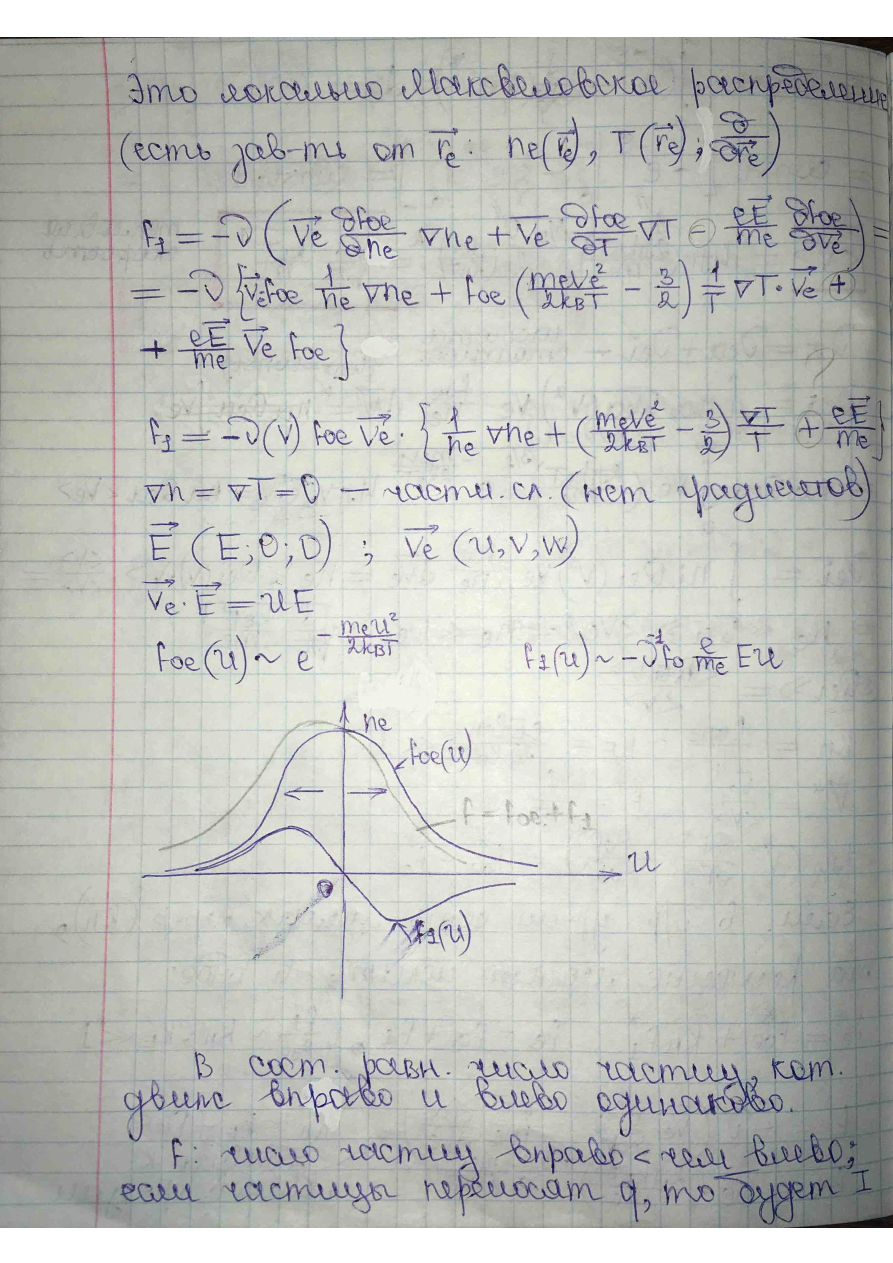 Это локально Максвеловское распределение
(есть зав-ть от r⃗e: ne(r⃗e), T(r⃗e); ∂/∂r⃗e)
f₁ = -ν (V⃗e ∂foe/∂ne ∇ne + V⃗e ∂foe/∂T ∇T - eE⃗/me ∂foe/∂V⃗e) =
= -ν {V⃗e foe 1/ne ∇ne + foe (meVe²/2kвT - 3/2) 1/T ∇T · V⃗e +
+ eE⃗/me V⃗e foe}
f₁ = -ν(v) foe V⃗e · {1/ne ∇ne + (meVe²/2kвT - 3/2) ∇T/T + eE⃗/me}
∇n = ∇T = 0 — частн. сл. (нет градиентов)
E⃗ (E; 0; 0) ; V⃗e (u, v, w)
V⃗e · E⃗ = uE
foe(u) ~ e^(-meu²/2kвT) f₁(u) ~ -ν⁻¹fo e/me Eu
ne
foe(u)
f = foe + f₁
u
f₁(u)
В сост. равн. число частиц, кот.
движ вправо и влево одинаково.
f: число частиц вправо < чем влево;
если частицы переносят q, то будет I